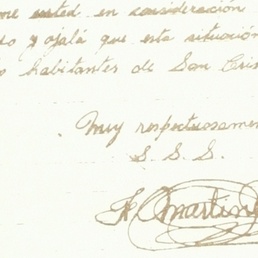 me usted en consideración
do y ojalá que esta situación
habitantes de San Cris
Muy respetuosamen
S. S. S.
Martin